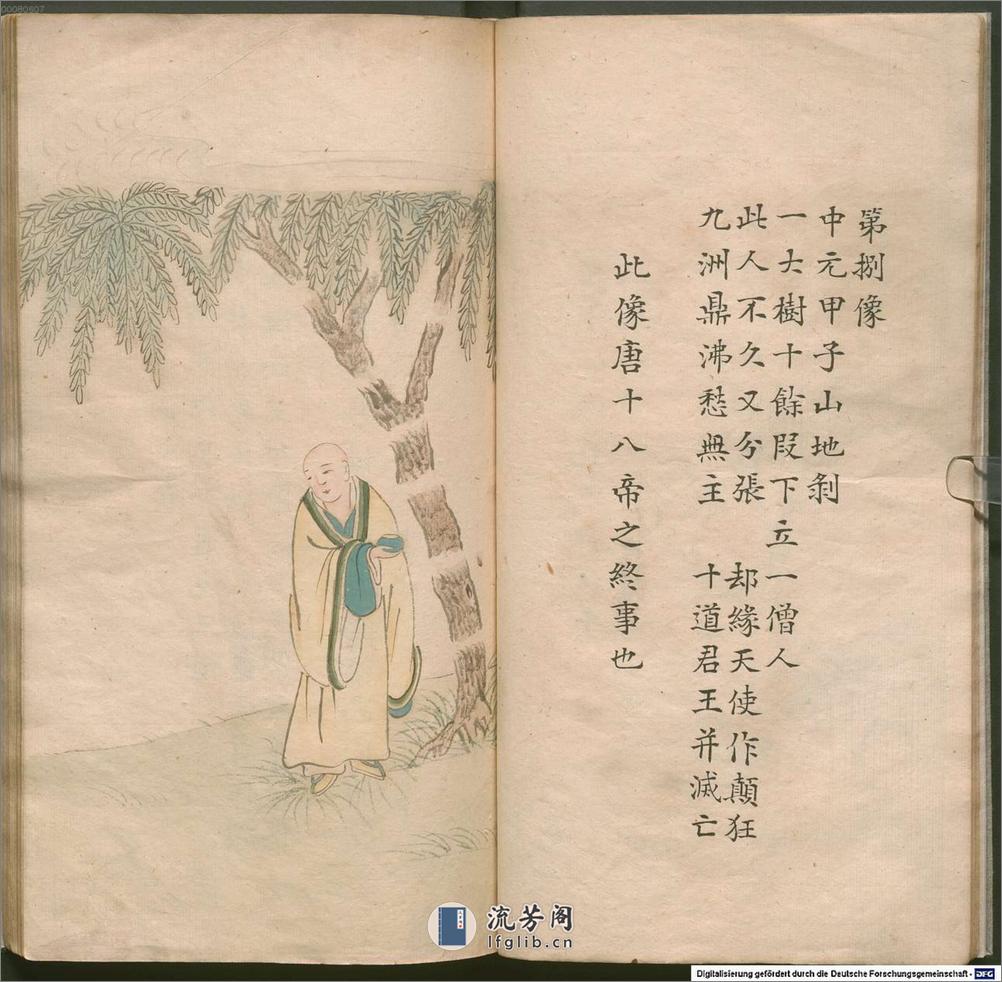 00080607
第捌像
中元甲子山地剥
一大樹十餘段下立一僧人
此人不久又分張　却緣天使作顛狂
九洲鼎沸愁無主　十道君王并滅亡
此像唐十八帝之終事也
流芳阁
lfglib.cn
Digitalisierung gefördert durch die Deutsche Forschungsgemeinschaft - DFG